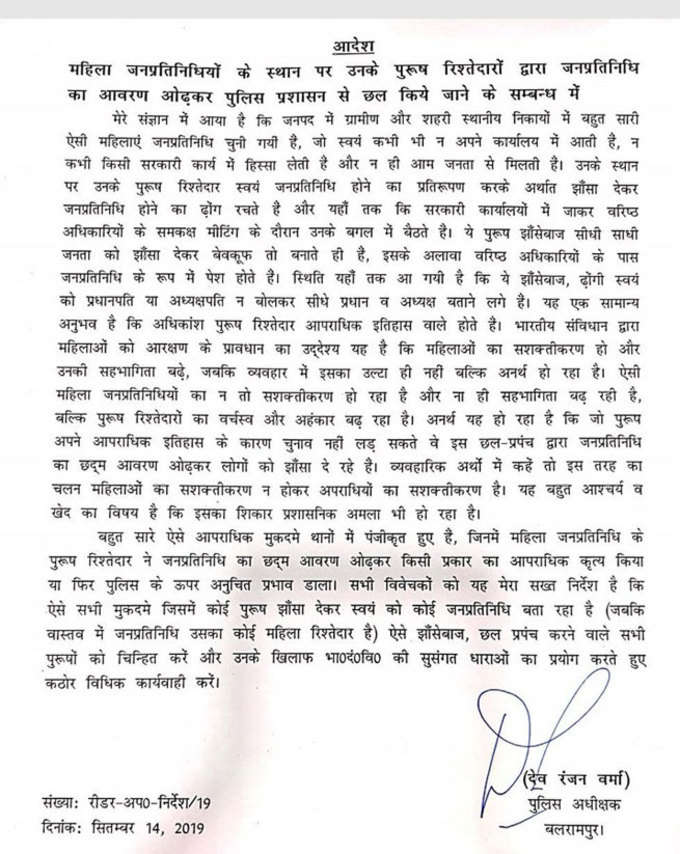 आदेश
महिला जनप्रतिनिधियों के स्थान पर उनके पुरूष रिश्तेदारों द्वारा जनप्रतिनिधि
का आवरण ओढ़कर पुलिस प्रशासन से छल किये जाने के सम्बन्ध में
मेरे संज्ञान में आया है कि जनपद में ग्रामीण और शहरी स्थानीय निकायों में बहुत सारी
ऐसी महिलाएं जनप्रतिनिधि चुनी गयी है, जो स्वयं कभी भी न अपने कार्यालय में आती है, न
कभी किसी सरकारी कार्य में हिस्सा लेती है और न ही आम जनता से मिलती है। उनके स्थान
पर उनके पुरूष रिश्तेदार स्वयं जनप्रतिनिधि होने का प्रतिरूपण करके अर्थात झाँसा देकर
जनप्रतिनिधि होने का ढ़ोंग रचते है और यहाँ तक कि सरकारी कार्यालयों में जाकर वरिष्ठ
अधिकारियों के समकक्ष मीटिंग के दौरान उनके बगल में बैठते है। ये पुरूष झाँसेबाज सीधी साधी
जनता को झाँसा देकर बेवकूफ तो बनाते ही है, इसके अलावा वरिष्ठ अधिकारियों के पास
जनप्रतिनिधि के रूप में पेश होते है। स्थिति यहाँ तक आ गयी है कि ये झाँसेबाज, ढ़ोंगी स्वयं
को प्रधानपति या अध्यक्षपति न बोलकर सीधे प्रधान व अध्यक्ष बताने लगे है। यह एक सामान्य
अनुभव है कि अधिकांश पुरूष रिश्तेदार आपराधिक इतिहास वाले होते है। भारतीय संविधान द्वारा
महिलाओं को आरक्षण के प्रावधान का उद्देश्य यह है कि महिलाओं का सशक्तीकरण हो और
उनकी सहभागिता बढ़े, जबकि व्यवहार में इसका उल्टा ही नहीं बल्कि अनर्थ हो रहा है। ऐसी
महिला जनप्रतिनिधियों का न तो सशक्तीकरण हो रहा है और ना ही सहभागिता बढ़ रही है,
बल्कि पुरूष रिश्तेदारों का वर्चस्व और अहंकार बढ़ रहा है। अनर्थ यह हो रहा है कि जो पुरूष
अपने आपराधिक इतिहास के कारण चुनाव नहीं लड़ सकते वे इस छल-प्रपंच द्वारा जनप्रतिनिधि
का छद्म आवरण ओढ़कर लोगों को झाँसा दे रहे है। व्यवहारिक अर्थो में कहें तो इस तरह का
चलन महिलाओं का सशक्तीकरण न होकर अपराधियों का सशक्तीकरण है। यह बहुत आश्चर्य व
खेद का विषय है कि इसका शिकार प्रशासनिक अमला भी हो रहा है।
बहुत सारे ऐसे आपराधिक मुकदमे थानों में पंजीकृत हुए है, जिनमें महिला जनप्रतिनिधि के
पुरूष रिश्तेदार ने जनप्रतिनिधि का छद्म आवरण ओढ़कर किसी प्रकार का आपराधिक कृत्य किया
या फिर पुलिस के ऊपर अनुचित प्रभाव डाला। सभी विवेचकों को यह मेरा सख्त निर्देश है कि
ऐसे सभी मुकदमे जिसमें कोई पुरूष झाँसा देकर स्वयं को कोई जनप्रतिनिधि बता रहा है (जबकि
वास्तव में जनप्रतिनिधि उसका कोई महिला रिश्तेदार है) ऐसे झाँसेबाज, छल प्रपंच करने वाले सभी
पुरूषों को चिन्हित करें और उनके खिलाफ भा0दं0वि0 की सुसंगत धाराओं का प्रयोग करते हुए
कठोर विधिक कार्यवाही करें।
(देव रंजन वर्मा)
पुलिस अधीक्षक
बलरामपुर।
संख्या: रीडर-अप0-निर्देश/19
दिनांक: सितम्बर 14, 2019